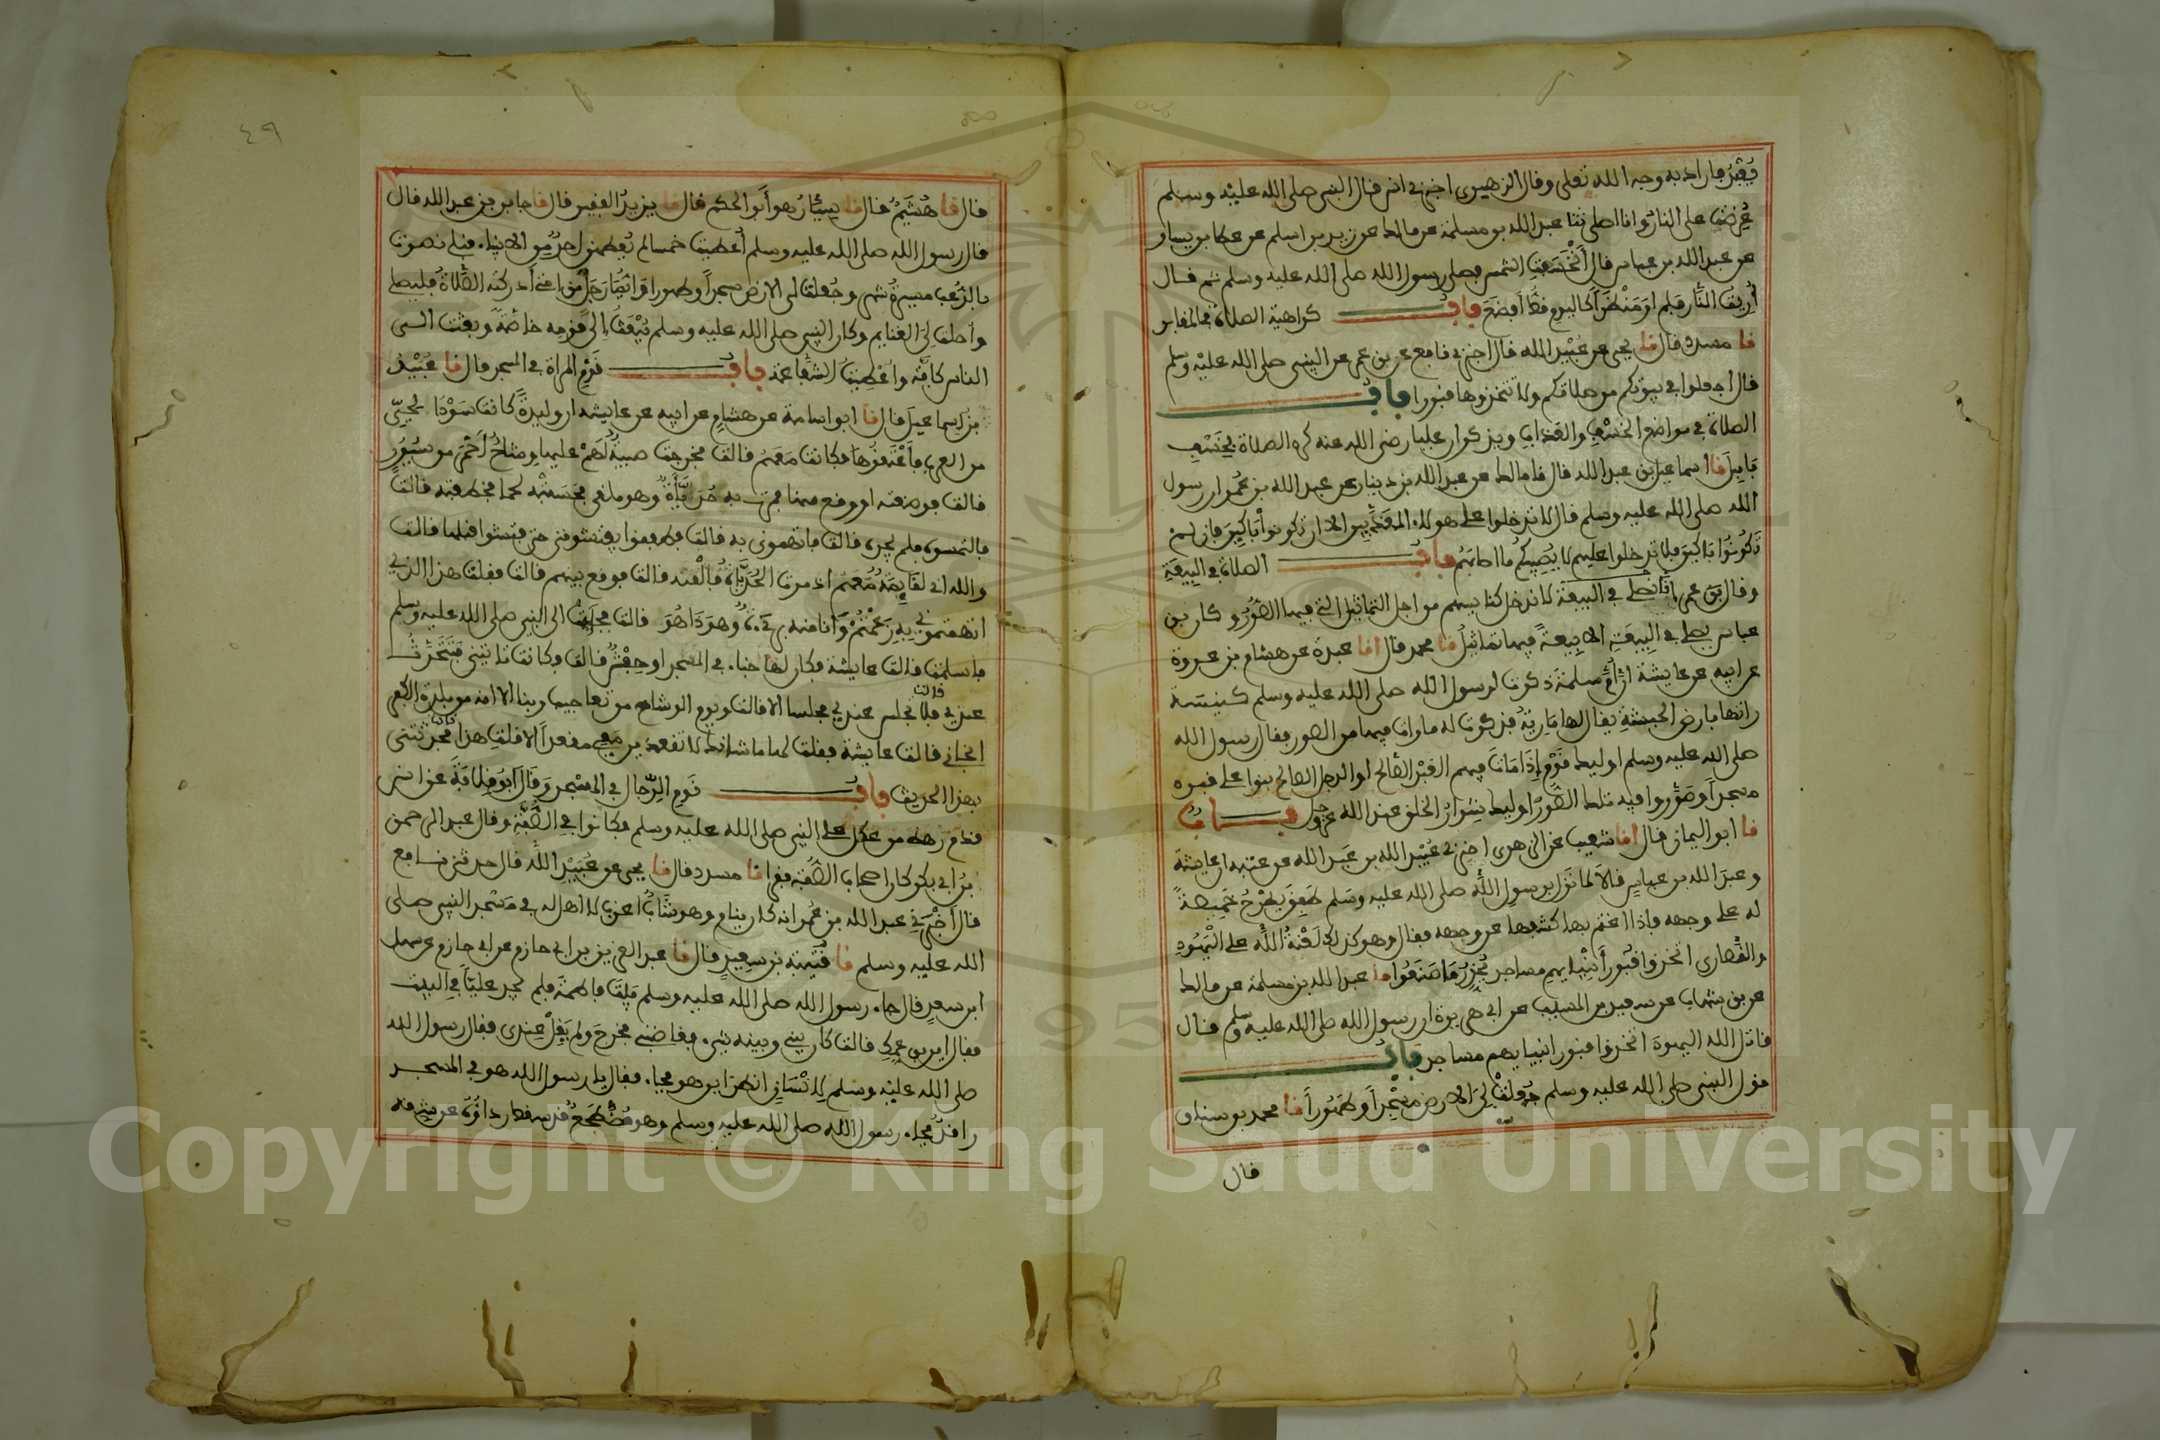 يُعْبَدُ فاراد به وجه الله تعلى وقال الزهري اخبرني انس قال النبي صلى الله عليه وسلم
عُرِضَت علي النار وانا اصلي ثنا عبد الله بن مسلمة عن مالك عن زيد بن اسلم عن عطا بن يسار
عن عبد الله بن عباس قال انْخَسَفَت الشمس فصلى رسول الله صلى الله عليه وسلم ثم قال
أُرِيتُ النَّار فلم ارَ مَنْظَراً كاليوم قَطُّ أَفْظَعَ باب كراهية الصلاة في المقابر
نا مسدد قال نا يحيى عن عُبَيْد الله قال اخبرني نافع عن بن عمر عن النبي صلى الله عليه وسلم
قال اجعلوا في بيوتكم من صلاتكم ولا تتخذوها قبورا باب
الصلاة في مواضع الخَسْفِ والعَذابِ ويذكر ان عليا رضي الله عنه كره الصلاة بِخَسْفِ
بَابِلَ نا اسماعيل بن عبد الله قال نا مالك عن عبد الله بن دينار عن عبد الله بن عُمر ان رسول
الله صلى الله عليه وسلم قال لا تدخلوا على هولاء المعَذَّبِين الا ان تكونوا بَاكِين فان لم
تَكُونُوا بَاكِين فلا تدخلوا عليهم لا يُصِيبُكُم ما اصابَهُم باب الصلاة في البِيعَةِ
وقال بن عمر إِنَّا لا نَدخل كنايسهم من اجل التماثيل التي فيها الصُّوَرُ وكان بن
عباس يصلي في البِيعَةِ الا بِيعةً فيها تماثيلُ نا محمد قال انا عبدة عن هشام بن عروة
عن ابيه عن عايشة انَّ أُمَّ سلمة ذكرت لرسول الله صلى الله عليه وسلم كنيسة
راتها بارض الحبشةِ يقال لها مَارِيَةُ فذكرت له ما رات فيها من الصور فقال رسول الله
صلى الله عليه وسلم اوليك قَوْمٌ إِذَا مَاتَ فيهم العَبْدُ الصَّالح او الرجل الصالح بنوا على قبره
مسجداً وصَوَّروا فيه تلك الصُّوَر اوليك شِرَارُ الخلق عند الله عز وجل باب
نا ابو اليمان قال انا شعيب عن الزهري اخبرني عُبَيْد الله بن عَبد الله بن عتبة ان عايشة
وعبدَ الله بن عباسٍ قالَا لَما نَزَل برسول الله صلى الله عليه وسلم طَفِقَ يَطْرَحُ خَمِيصَةً
له على وجهه فاذا اغتم بها كشفها عن وجهه فقال وهو كذلك لَعْنَةُ الله على الْيَهُودِ
والنَّصَارى اتخذوا قبُورَ أَنْبِيَايهم مساجد يُحَذِّرُ مَا صَنَعُوا نا عبد الله بن مسلمة عن مالك
عن بن شهاب عن سعيد بن المسيب عن ابي هريرة ان رسول الله صلى الله عليه وسلم قال
قاتل الله اليهود اتخذوا قبور انبيايهم مساجد باب
قول النبي صلى الله عليه وسلم جُعِلَتْ لِيَ الارض مَسْجِداً وطَهُوراً نا محمد بن سنان
قال
٤٩
قال نا هُشَيْمٌ قال نا سَيَّارٌ هو أَبو الحكم قال نا يزيدُ الفقير قال نا جابر بن عبد الله قال
قال رسول الله صلى الله عليه وسلم أُعطِيت خمسا لم يُعطهن احدٌ من الانبياء قبلي نصرت
بالرُّعب مسيرةَ شهر وجُعلت لي الارض مسجداً وطهورا وَايُّمَا رَجُلٍ من امتي أدركته الصَّلاةُ فليصل
واحلت لِيَ الغنايم وكان النبي صلى الله عليه وسلم يُبْعَث إِلى قومه خاصَّةً وبعثت الى
الناس كافَّة واعْطِيتُ الشفاعة باب نَوْمِ المراة في المسجد قال نا عُبَيْدُ
بن اسماعيل قال نا ابو اسامة عن هشام عن ابيه عن عايشة ان وليدةً كانت سَوْدَا لِحَيٍّ
من العرب فأَعْتَقُوهَا فكانت مَعَهُم قالت فخرجت صبيةٌ لَهم عليها وِشَاحٌ أَحْمَرُ من سُيُورٍ
قالت فوضعته او وقع منها فمرت به حُدَيَّاةٌ وهو ملقى فحَسِبَتْه لحما فخطفته قالت
فالتمسوه فلم يجدوه قالت فاتهموني به قالت فطفقوا يفتشوني حتى فتشوا قبلها قالت
والله اني لقَايِمَةٌ مَعَهُم اذ مرت الحُدَيَّاةُ فأَلْقَته قالت فوقع بينهم قالت فقلت هذا الذي
اتهمتموني به زَعَمْتُمْ وَأنا منه برِيَّةٌ وهُوَ ذَا هُوَ قالت فجاءت الى النبي صلى الله عليه وسلم
فاسلمت قالت عايشة فكان لها خباء في المسجد او حِفْشٌ قالت فكانت تاتيني فَتَتَحَدَّثُ
عندي قالت فلا تجلس عندي مجلسا الا قالت ويوم الوشاح من تعاجيب ربنا الا انه من بلدة الكفر
انجاني قالت عايشة فقلت لها ما شانك لا تقعدين معي مقعداً الا قلتِ هذا قالت فحدثتني
بهذا الحديث باب نَومِ الرِّجال في المسْجد وَقَال أَبو قِلابَةَ عن انس
قدم رهط من عكل على النبي صلى الله عليه وسلم فكانوا في الصُّفَّة وقال عبد الرحمن
بنُ ابي بكر كان اصحاب الصُّفة فقرا نا مسدد قال نا يحيى عن عُبَيْد الله قال حدثني نافع
قال أَخْبَرَنِي عبد الله بن عُمر انه كان ينام وهو شَابٌّ أعزب لا اهل له في مَسْجد النبي صلى
الله عليه وسلم نا قُتَيبة بن سعيدٍ قال نا عبد العزيز بن ابي حازم عن ابي حازم عن سهل
ابن سعدٍ قال جاء رسول الله صلى الله عليه وسلم بيت فاطمة فلم يجد عليّاً في البيت
فقال اين بن عمك قالت كان بيني وبينه شيء فغاضبني فخرجَ ولم يَقِلْ عِنْدِي فقال رسول الله
صلى الله عليه وسلم لِانْسَانٍ انظر اين هو فجاء فقال يا رسول الله هو في المسجد
راقدٌ فجاء رسول الله صلى الله عليه وسلم وهو مُضْطَجعٌ قد سقط رداؤُهُ عن شقه